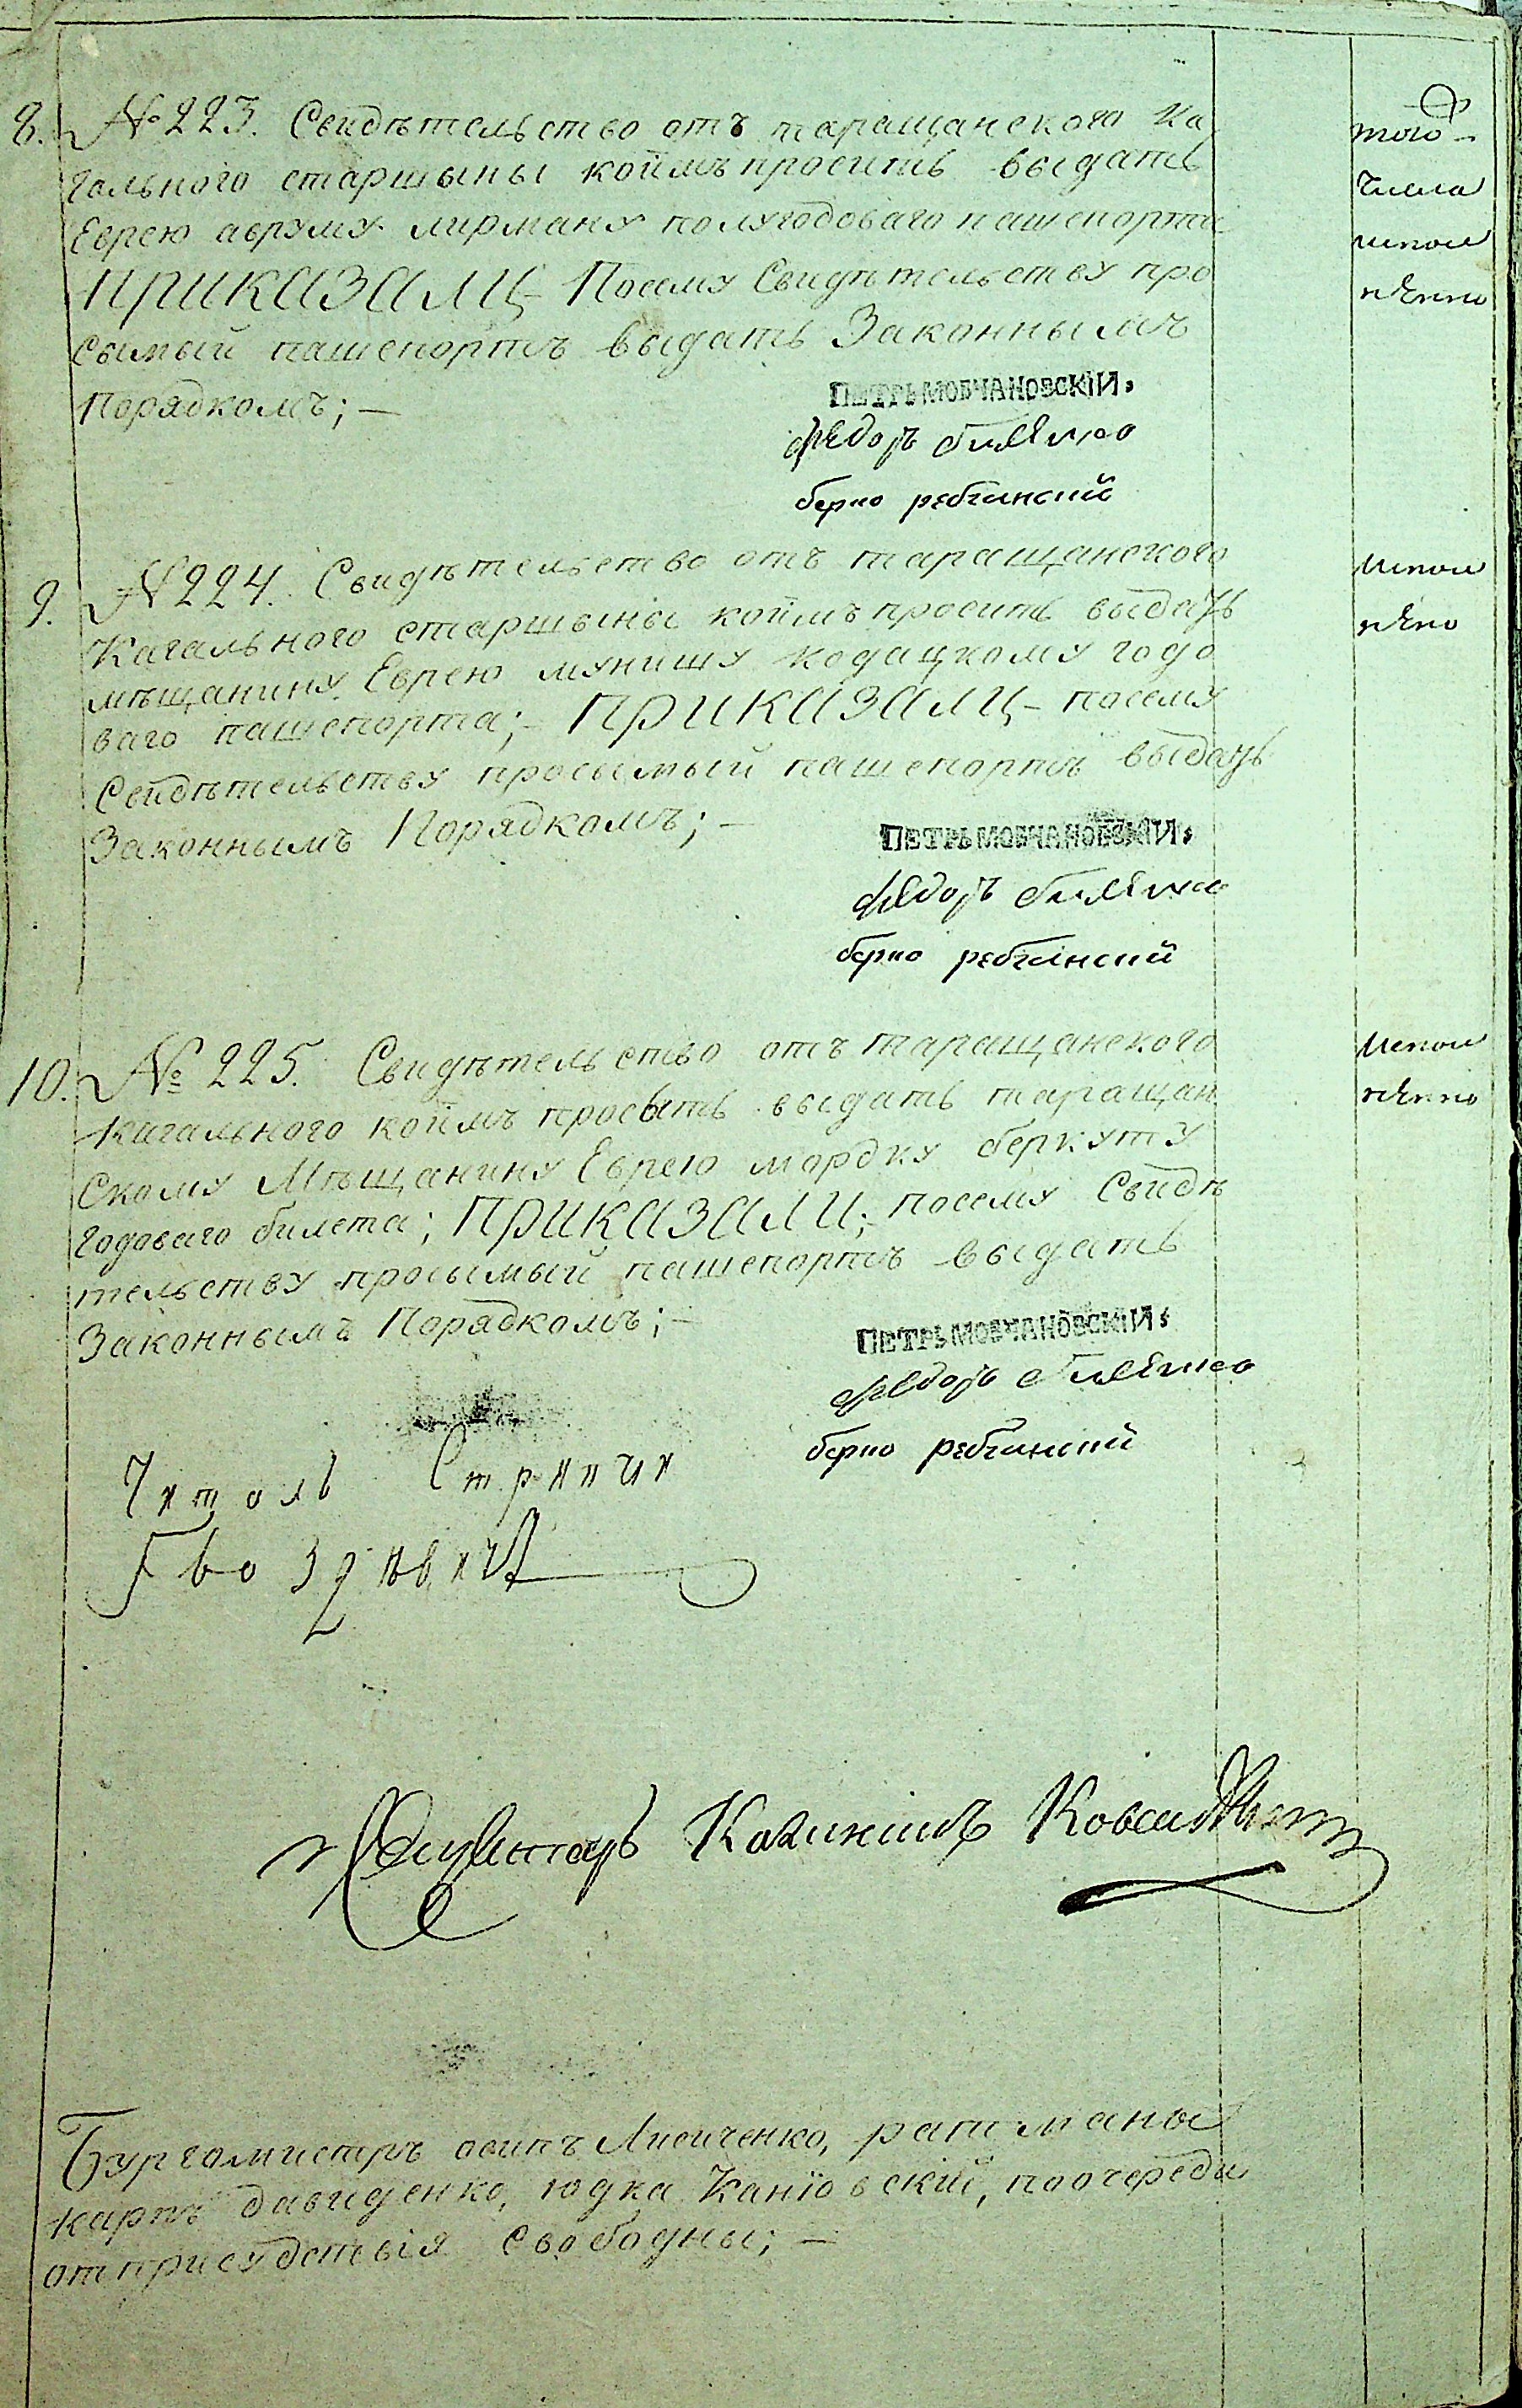 8. № 223. Свидѣтельство отъ таращанского ка
гального старшыны коимъ просить выдать
Еврею авруму лирману полугодоваго пашепорта
приказали – Посему Свидѣтельству про
сымый пашепортъ выдать Законнымъ
Порядкомъ; —
того –
числа
испол
нено
ПЕТРЪ МОВЧАНОВСКІЙ.
федоръ
берко ребчинский
9. № 224. Свидѣтельство отъ таращанского
Кагального старшыны коимъ просить выдать
мѣщанину Еврею мунишу кодацкому годо
ваго пашепорта; – приказали – посему
Свидѣтельству просымый пашепортъ выдать
Законнымъ Порядкомъ; —
испол
нено
ПЕТРЪ МОВЧАНОВСКІЙ.
федоръ
берко ребчинский
10. № 225. Свидѣтельство отъ таращанского
кагального коимъ просыть выдать таращан
скому Мѣщанину Еврею мордку беркуту
годоваго билета; приказали; – посему Свидѣ
тельству просымый пашепортъ выдать
Законнымъ Порядкомъ; —
испол
нено
ПЕТРЪ МОВЧАНОВСКІЙ.
федоръ
берко ребчинский
Читалъ Стряпчи
Гвоздѣвичъ
Бургомистръ осипъ Лисиченко, ратманы
карпъ давиденко, юдка Каніовскій, поочереди
отприсудствія свободны; —